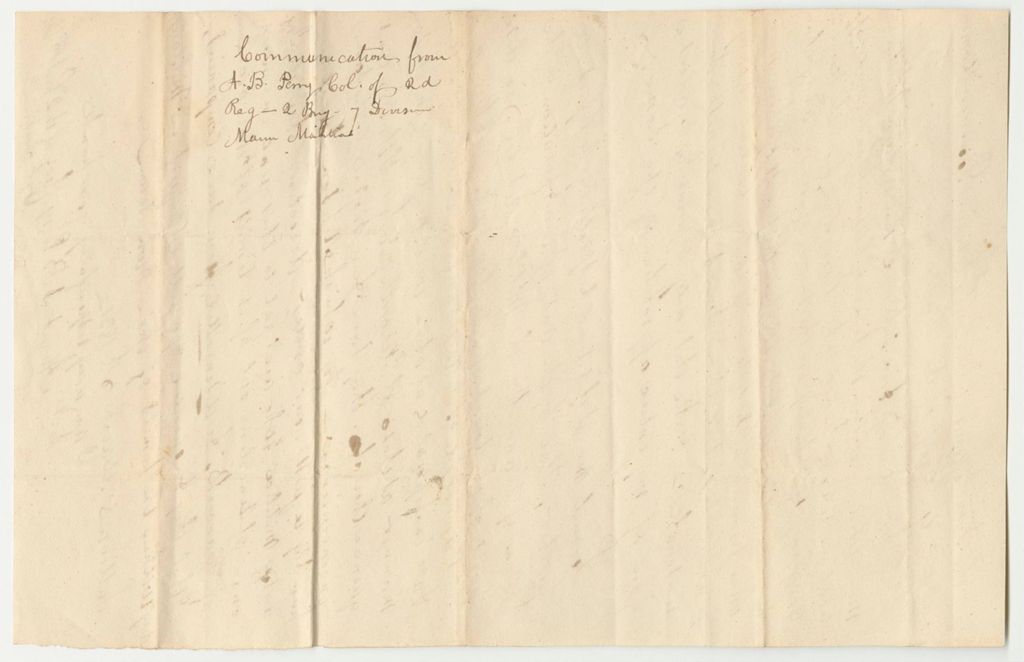 Communication from
A. B. Perry Col. of 2d
Reg - 2 Brig - 7 Division
Maine Militia